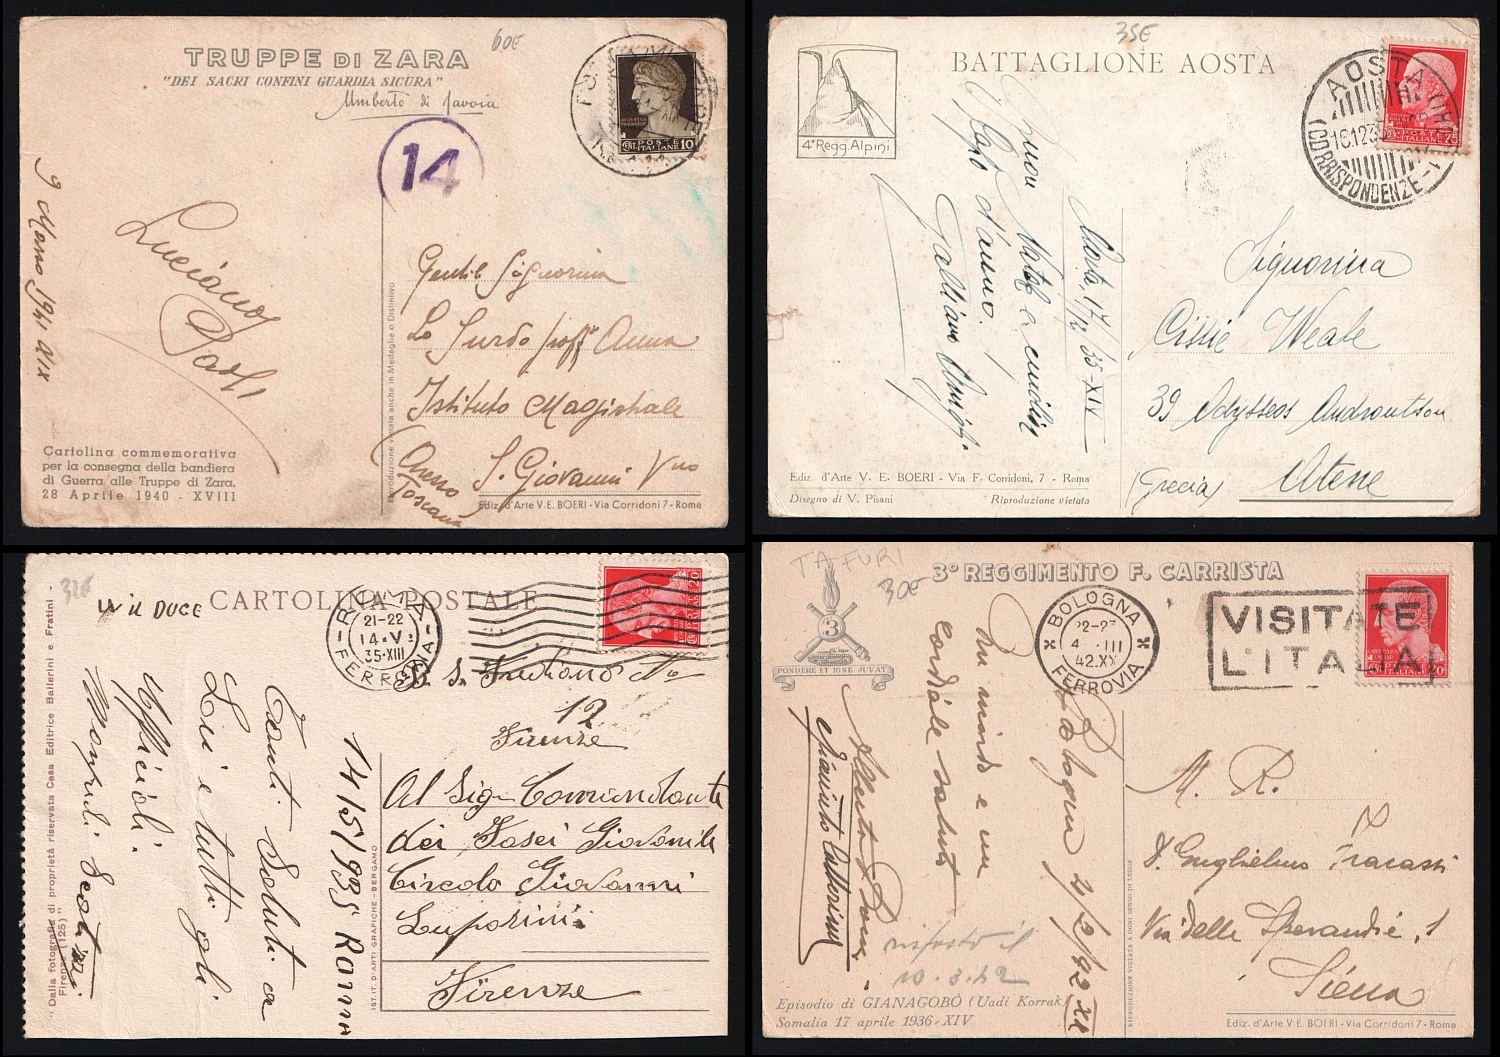 TRUPPE DI ZARA
60€
"DEI SACRI CONFINI GUARDIA SICURA"
Umberto di Savoia
14
POSTE
ITALIANE
CENT.
10
Luciano
9 Marzo 1941 XIX
Gentil Signorina
Lo Surdo Anna
Istituto Magistrale
S. Giovanni V.no
Arezzo
Toscana
Riproduzione vietata anche in Medaglia o Distintivo
Cartolina commemorativa
per la consegna della bandiera
di Guerra alle Truppe di Zara.
28 Aprile 1940 - XVIII
Ediz. d'Arte V. E. BOERI - Via Corridoni 7 - Roma
35€
BATTAGLIONE AOSTA
4° Regg. Alpini
AOSTA
16.12.3
(CORRISPONDENZE -
POSTE
ITALIANE
75
Aosta, 17/12/35-XIV
Buon Natale e
Capo d'anno.
Signorina
Cissie Weale
39 Odysseos Androutsou
Atene
(Grecia)
Ediz. d'Arte V. E. BOERI - Via F. Corridoni, 7 - Roma
Disegno di V. Pisani
Riproduzione vietata
W IL DUCE
CARTOLINA POSTALE
ROMA
21-22
14·V
35·XIII
FERROVIA
20
12
Firenze
Al Sig. Comandante
dei Fasci Giovanili
Circolo Giovanni
Luporini
Firenze
14/5/935 Roma
Tanti Saluti a
Lei e tutti gli
Ufficiali.
"Dalla fotografia di proprietà riservata Casa Editrice Ballerini e Fratini -
Firenze (125)"
IST. IT. D'ARTI GRAFICHE - BERGAMO
TAFURI
30€
3° REGGIMENTO F. CARRISTA
3
PONDERE ET IGNE JUVAT
BOLOGNA
22-23
4 · III
42.XX
FERROVIA
VISITATE
L'ITALIA
20
Bologna
Un ricordo e un
cordiale saluto
risposto il
10.3.42
M. R.
P. Guglielmo Fracassi
Via delle Sperandie, 1
Siena
RIPRODUZIONE VIETATA A OGNI SENSO DI LEGGE
Episodio di GIANAGOBÒ (Uadi Korrak)
Somalia 17 aprile 1936-XIV
Ediz. d'Arte V. E. BOERI - Via Corridoni 7 - Roma